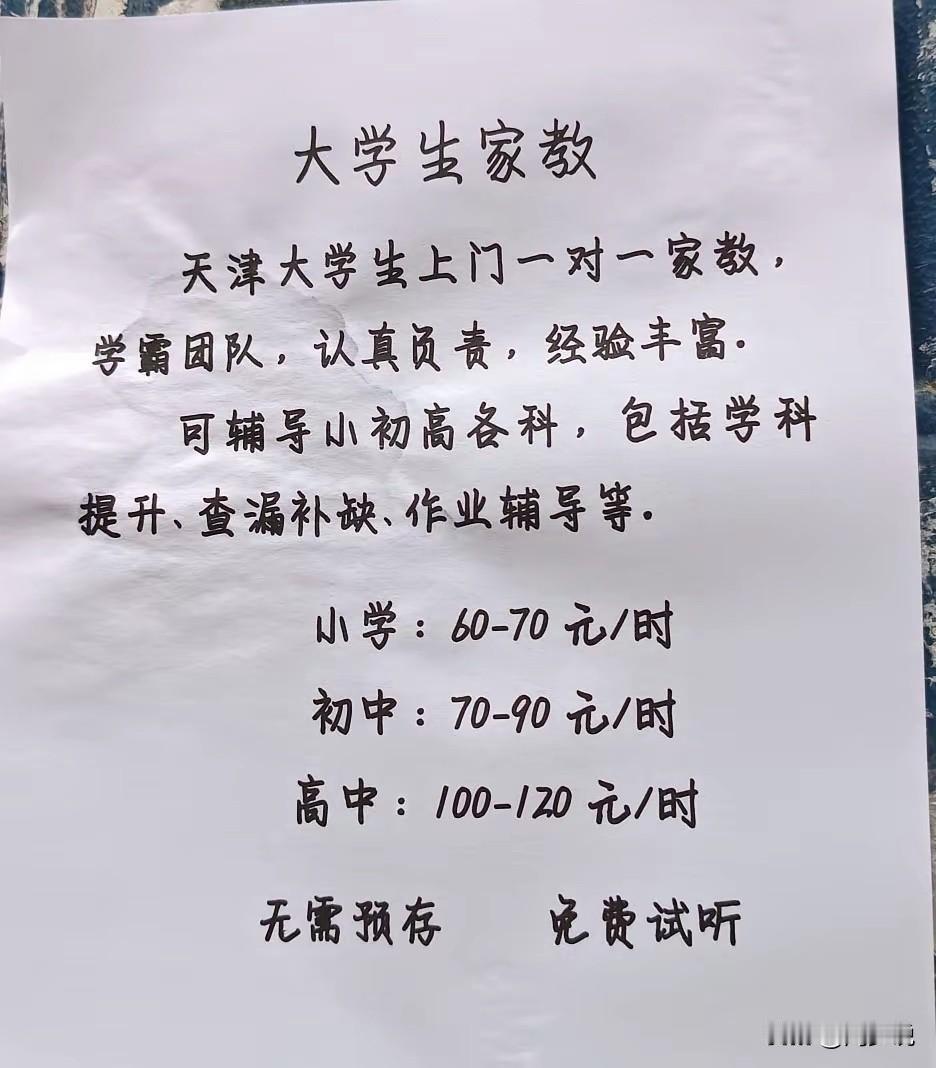 大学生家教
天津大学生上门一对一家教，
学霸团队，认真负责，经验丰富.
可辅导小初高各科，包括学科
提升、查漏补缺、作业辅导等.
小学：60-70 元/时
初中：70-90 元/时
高中：100-120 元/时
无需预存 免费试听